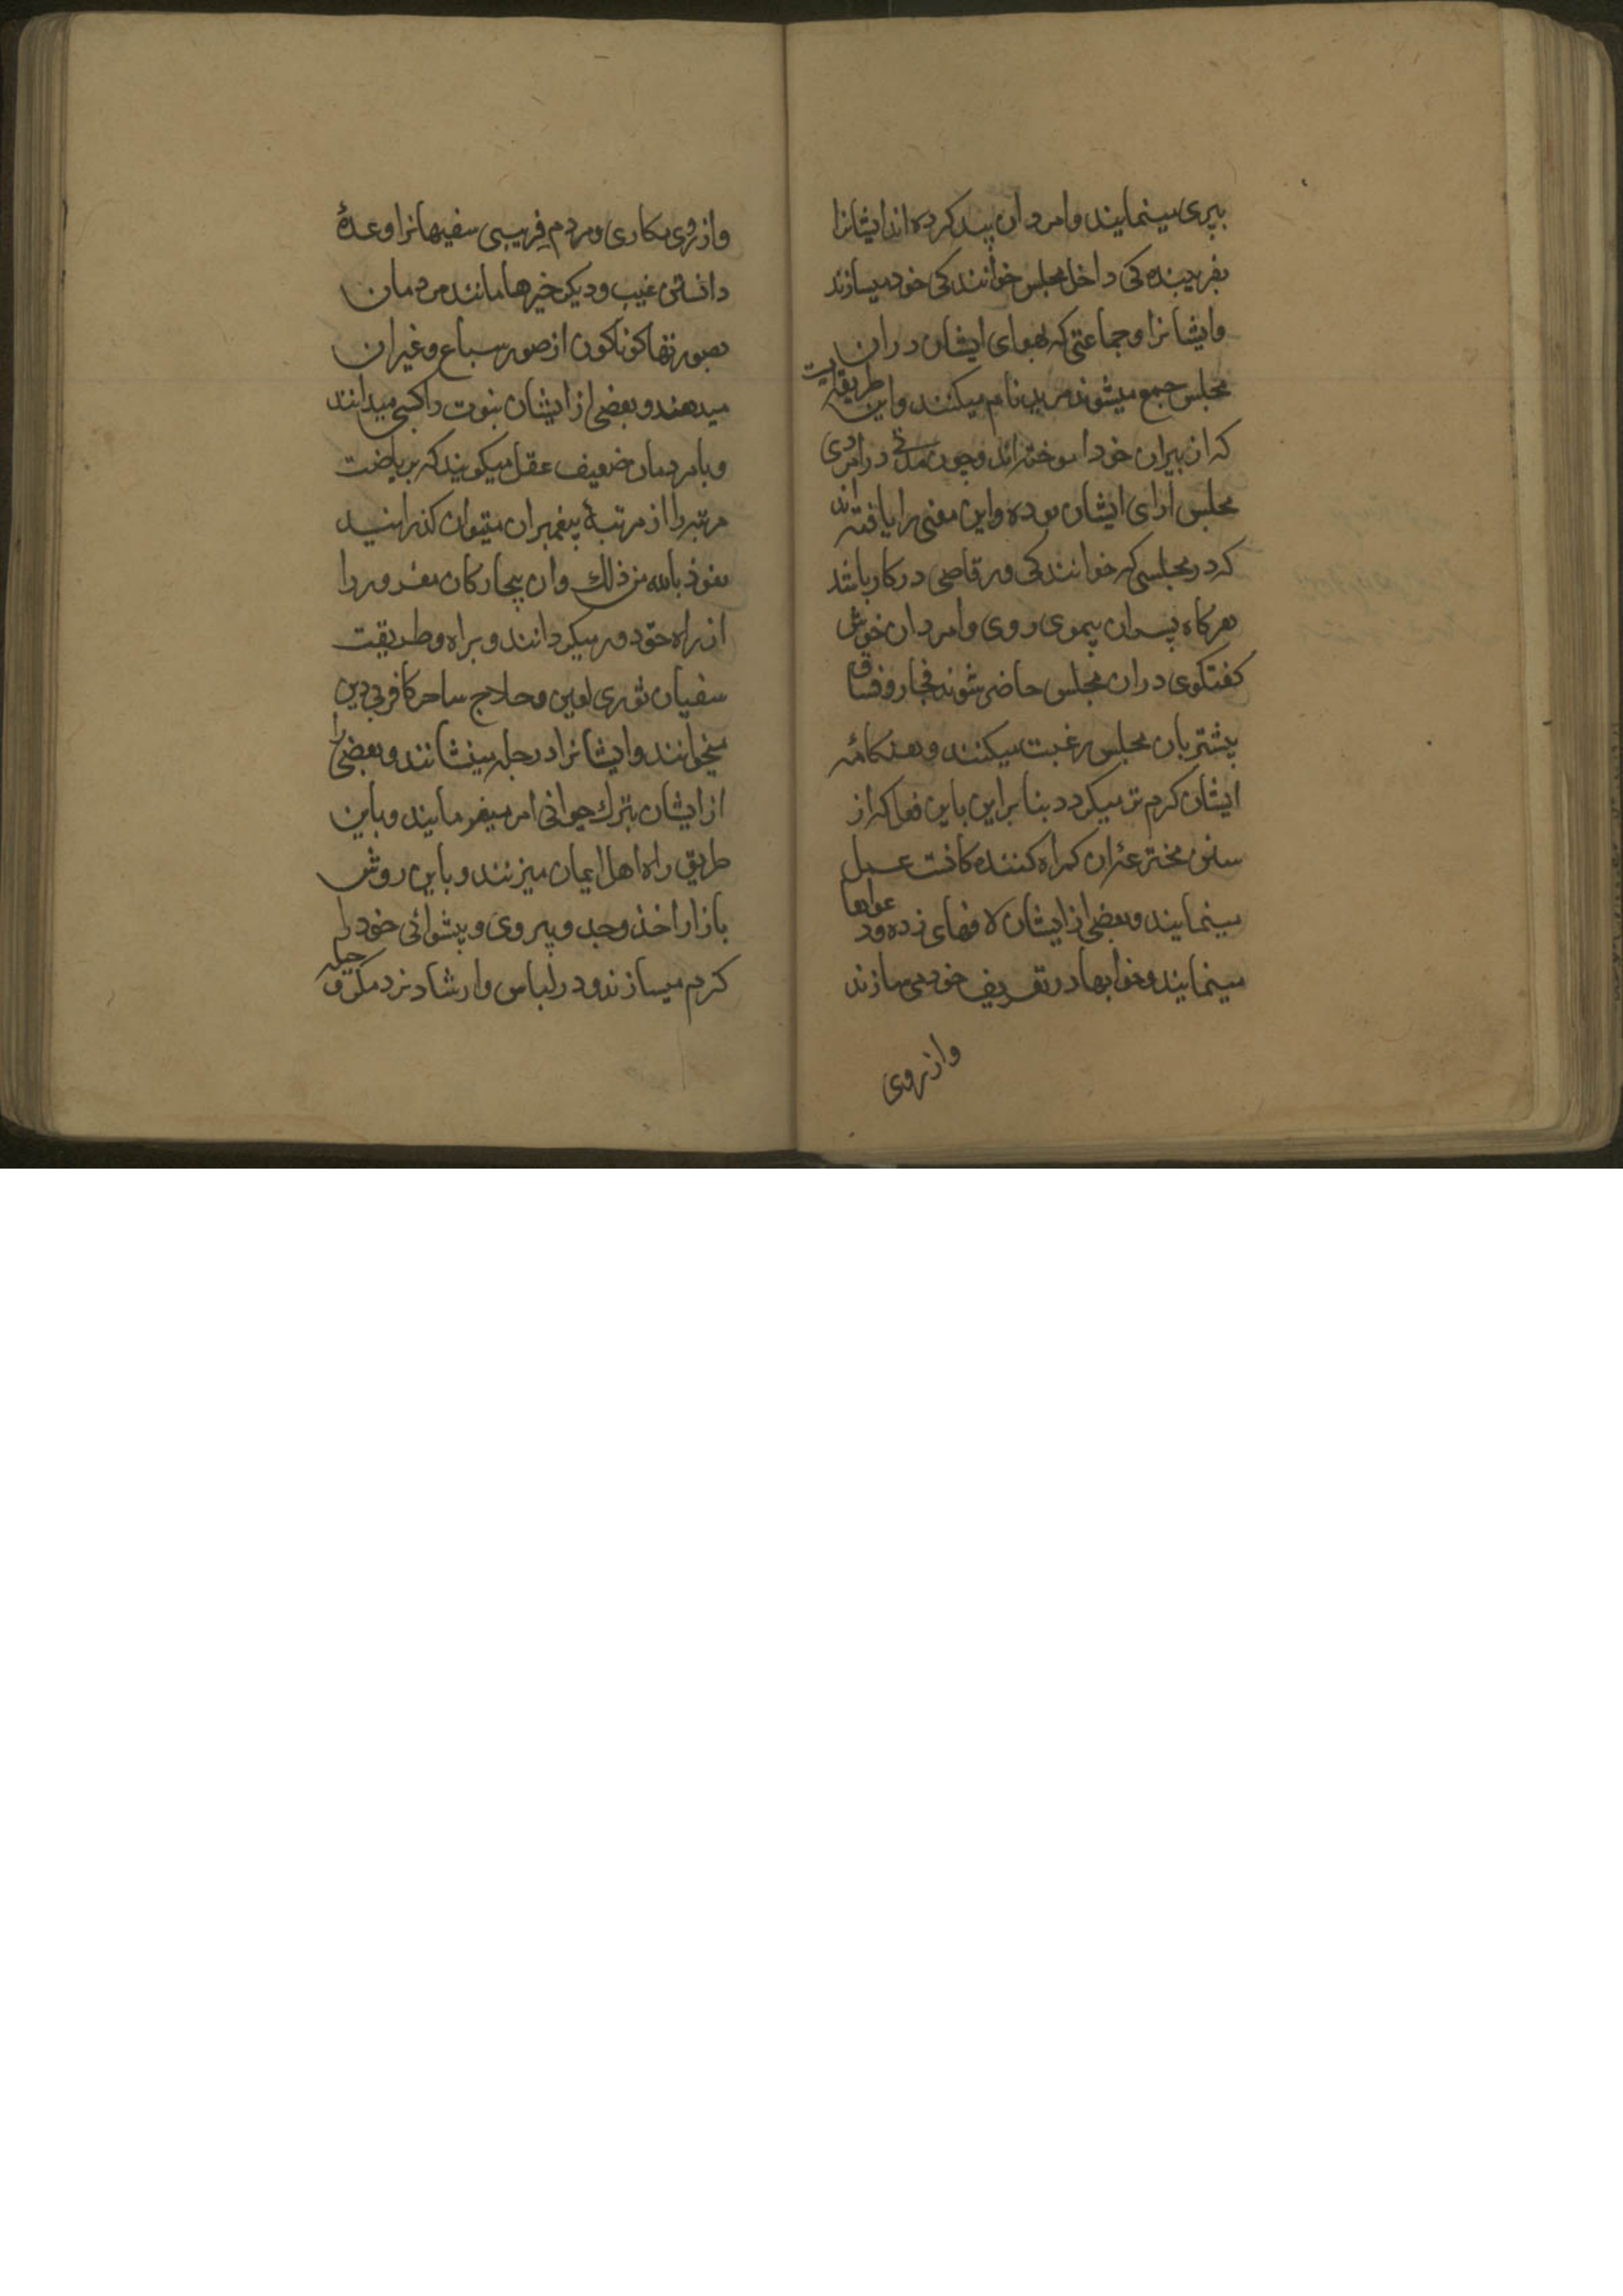 بپری مینمایند وامردان پسند کرده اند ایشانرا
بفریبنده کی داخل مجلس خوانند کی خود میسازند
وایشانرا وجماعتی که بهوای ایشان دران
مجلس جمع میشوند مرید نام میکنند واین طریقه ایست
که از پیران خود اموخته اند وچون مدتی در امردی
مجلس ارای ایشان بوده واین معنی را یافته اند
که در مجلسی که خوانند کی ورقاصی در کار باشد
هرکاه پسران بیموی روی وامردان خوش
کفتکوی دران مجلس حاضر شوند فجار وفساق
بیشتر بان مجلس رغبت میکنند وهنکامه
ایشان کرم تر میکردد بنا براین باین فعل که از
سنن مخترعان کمراه کننده کافت عمل
مینمایند وبعضی از ایشان لافهای زده ود عواها
مینمایند وخوابها در تعریف خود می سازند
وازروی
وازروی مکاری ومردم فریبی سفیهانرا وعدهٔ
دانستن غیب ودیکر خیرها مانند مردمان
بصورتها کوناکون از صور سباع وغیران
میدهند وبعضی از ایشان نبوت را کسبی میدانند
وبامردمان ضعیف عقل میکویند که بریاضت
مرتبه را از مرتبهٔ پیغمبران میتوان کذرانید
نعوذ بالله من ذلك وان بیچارکان مغرور را
از راه حق دور میکردانند وبراه وطریقت
سفیان ثوری لعین وحلاج ساحر کافر بی دین
میخوانند وایشانرا در چله مینشانند وبعضی را
از ایشان بترك حیوانی امر میفرمایند وباین
طریق راه اهل ایمان میزنند وباین روش
بازار اخذ وجد وپیروی وپیشوائی خود را
کرم میسازند ودر لباس وارشاد نرد مکر و حیله